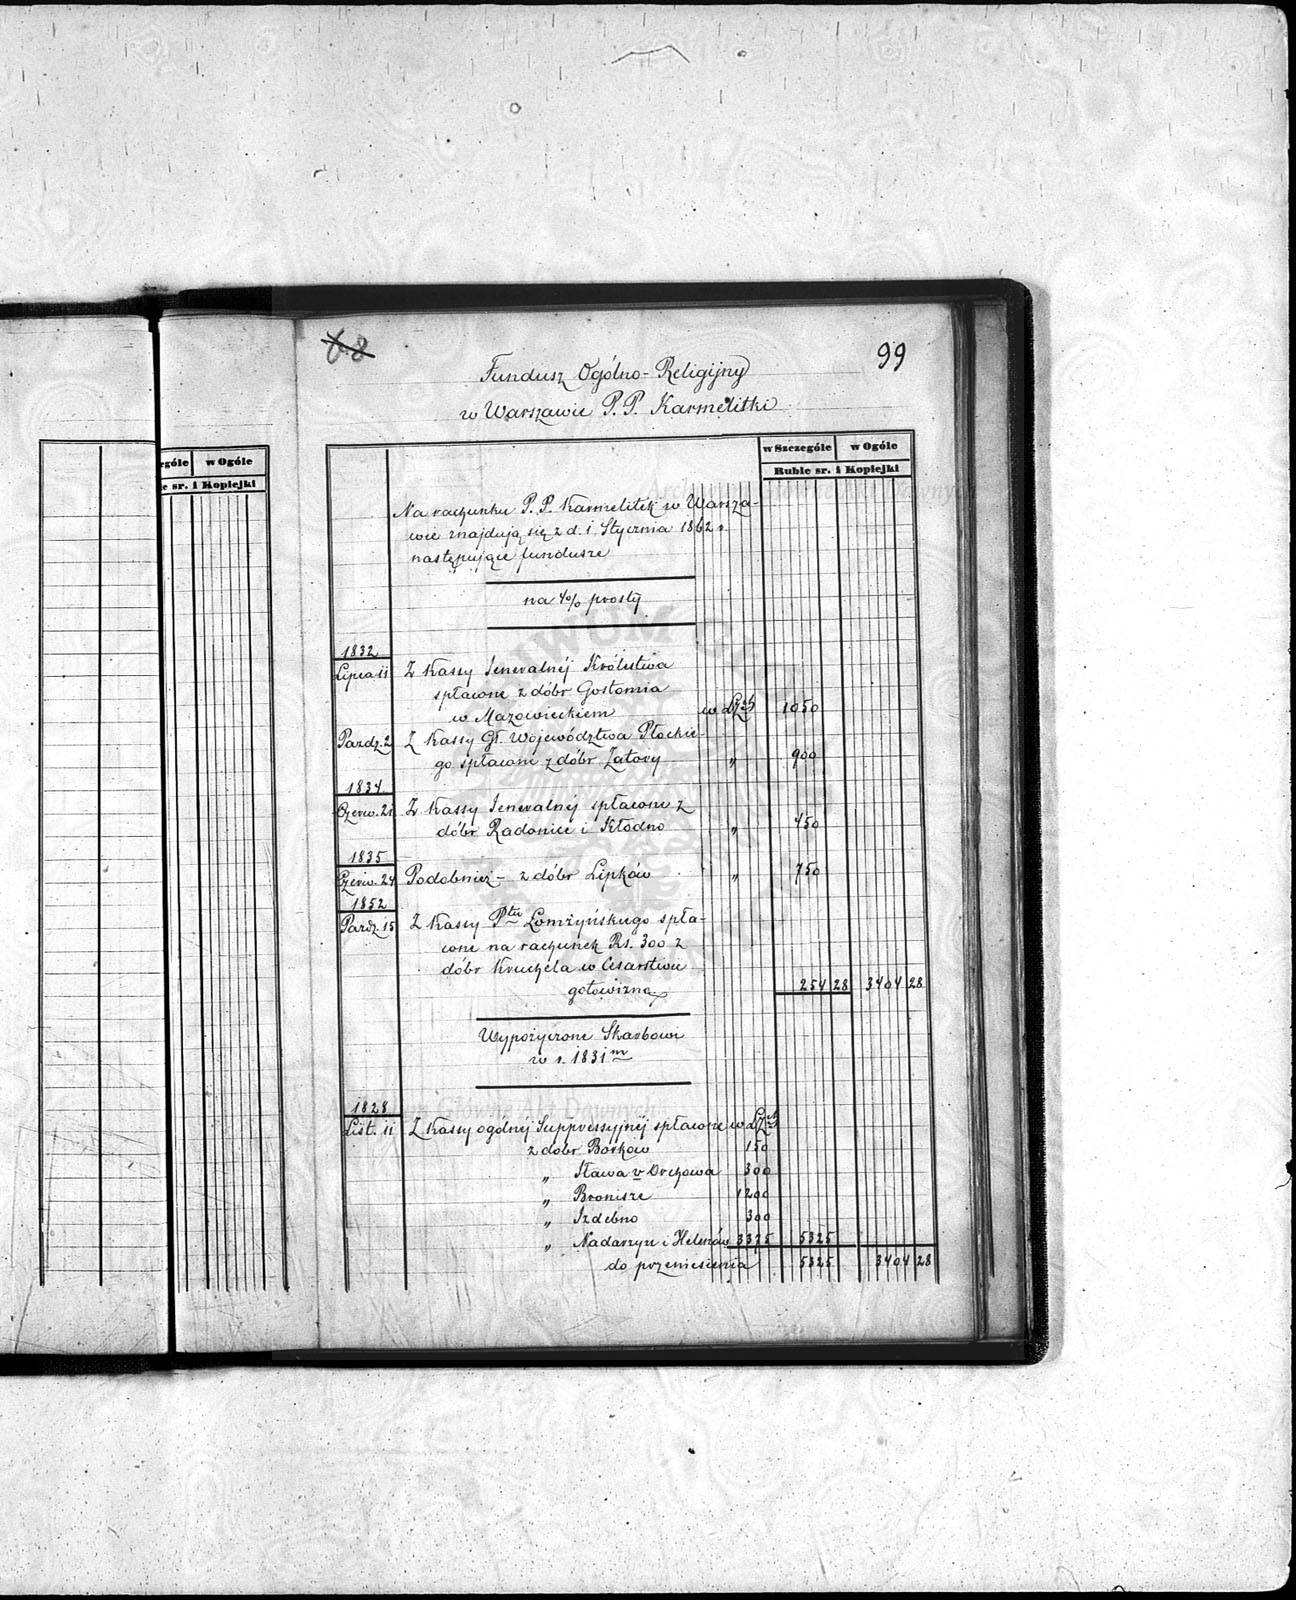 68
99
Fundusz Ogólno-Religijny
w Warszawie P.P. Karmelitki
w Ogóle
sr. i Kopiejki
w Szczególe w Ogóle
Ruble sr. i Kopiejki
Na rachunku P.P. Karmelitek w Warsza-
wie znajdują się z d. 1 Stycznia 1862 r.
następujące fundusze
na 4% prosty
1832
Lipca 11 Z Kassy Jeneralnéj Królestwa
spłacone z dóbr Gostomia
w Mazowieckiem w LZ 1050
Pazdz. 2 Z Kassy Gł. Województwa Płockie-
go spłacone z dóbr Zatory " 900
1834
Czerw. 21 Z Kassy Jeneralnéj spłacone z
dóbr Radonice i Kłodno " 450
1835
Czerw. 24 Podobnież - z dóbr Lipków " 750
1852
Pazdz. 15 Z Kassy Ptu Łomżyńskiego spła-
cone na rachunek Rs. 300 z
dóbr Kruchela w Cesarstwie
gotowizną 254 28 3404 28
Wypożyczone Skarbowi
w r. 1831m
1828
List. 11 Z Kassy ogólnéj Suppressyjnéj spłacone w LZ
z dóbr Borków 150
" Sława v Orchowa 300
" Bronisze 1200
" Izdebno 300
" Nadarzyn i Helenów 3375 5325
do przeniesienia 5325 3404 28